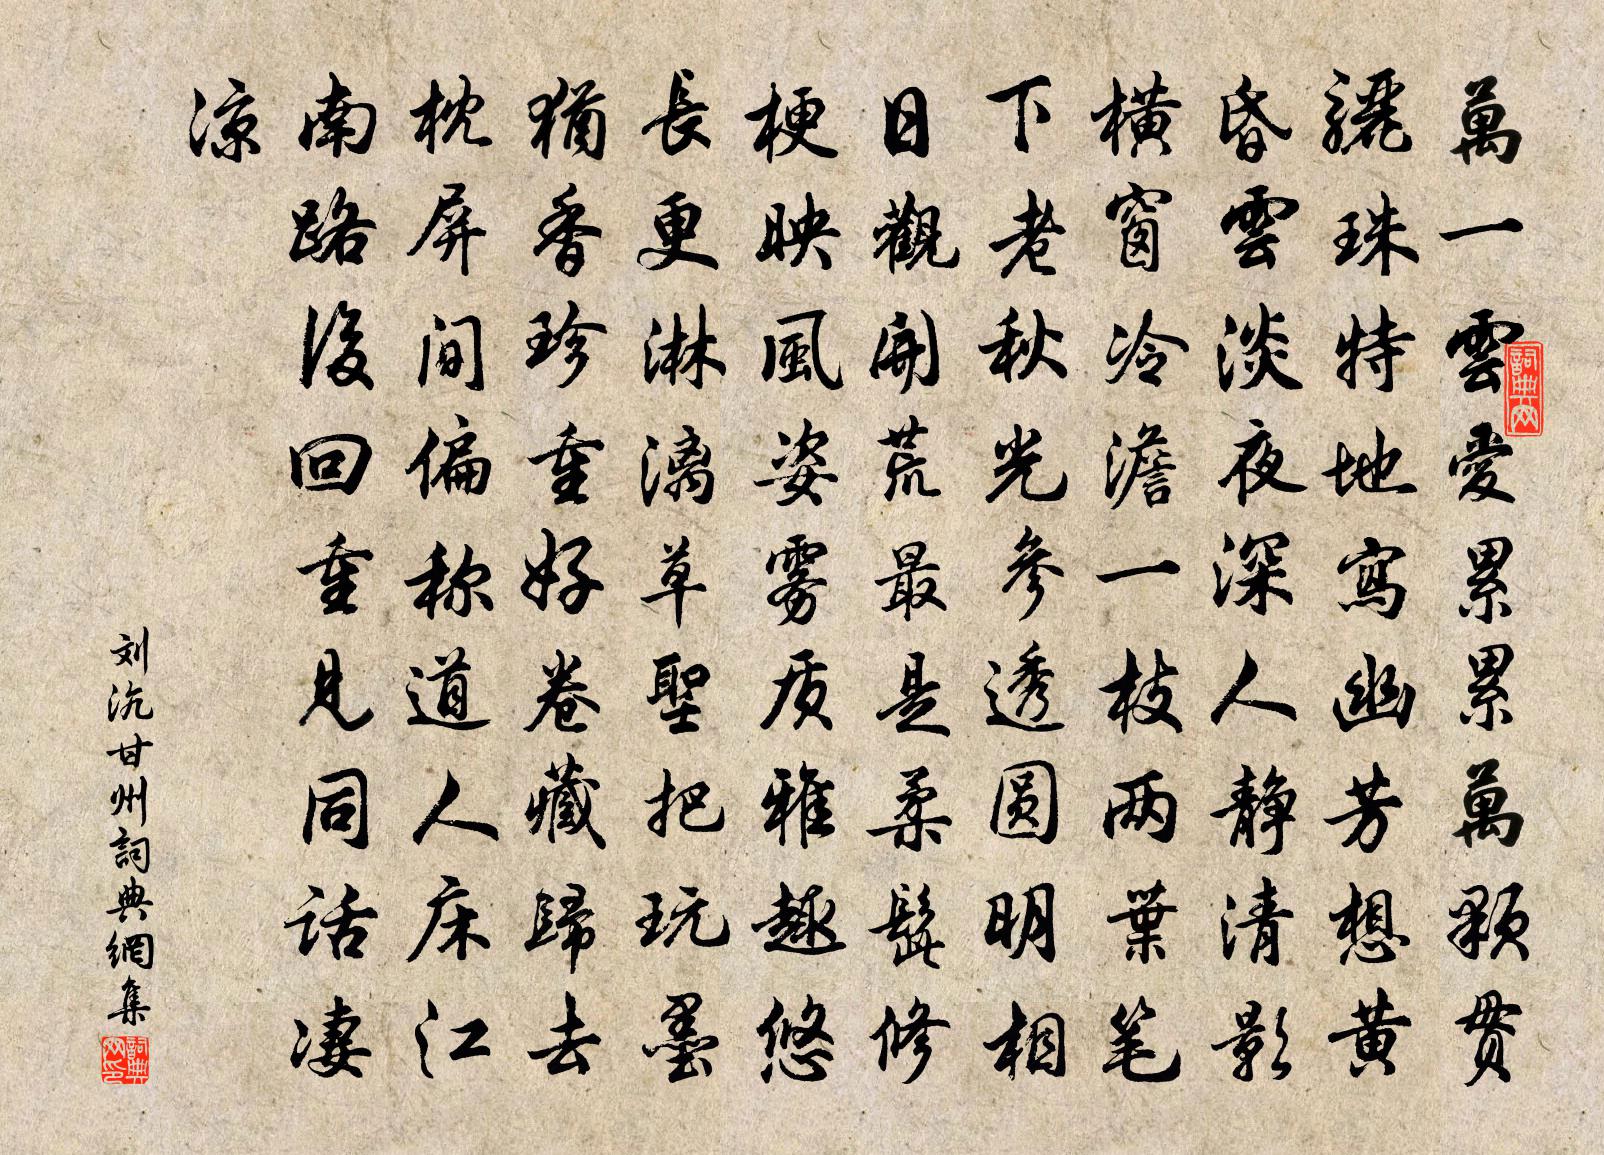 萬一雲愛累累萬顆貫
驪珠特地寫幽芳想黃
昏雲淡夜深人靜清影
橫窗冷澹一枝两葉笔
下老秋光參透圓明相
日觀開荒最是柔髭修
梗映風姿雾质雅趣悠
長更淋漓草聖把玩墨
猶香珍重好卷藏歸去
枕屏间偏称道人床江
南路後回重見同话凄
凉
刘沆甘州詞典網集
詞典网
詞典网印